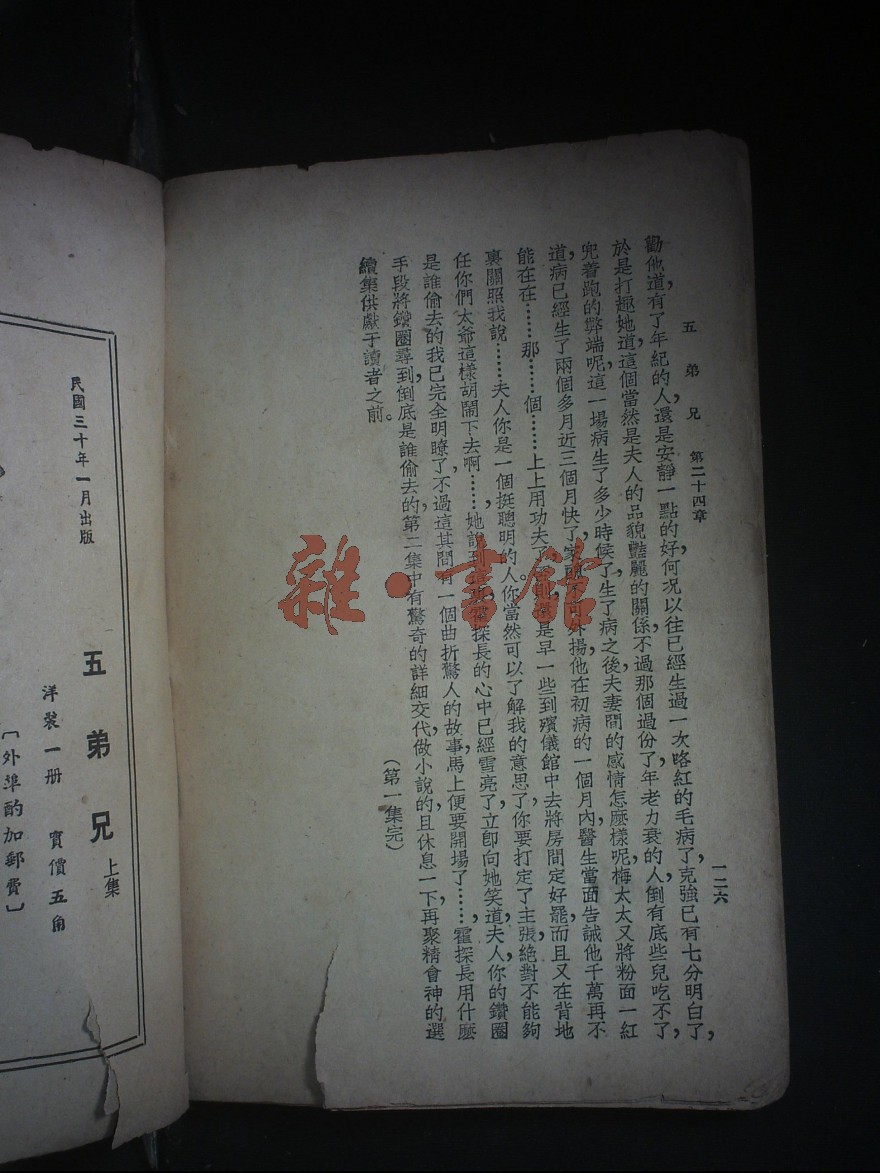 五弟兄　第二十四章
一二六
勸他道，有了年紀的人，還是安靜一點的好，何況以往已經生過一次咯紅的毛病了，克強已有七分明白了，
於是打趣她道，這個當然是夫人的品貌豔麗的關係，不過那個過份了，年老力衰的人，倒有底些兒吃不了，
兜着跑的弊端呢，這一場病生了多少時候了，生了病之後，夫妻間的感情怎麼樣呢，梅太太又將粉面一紅
道，病已經生了兩個多月，近三個月快了，家醜不可外揚，他在初病的一個月內，醫生當面告誡他，千萬再不
能在在……那……個……上上用功夫了，否則還是早一些到殯儀館中去將房間定好罷，而且又在背地
裏關照我說……夫人你是一個挺聰明的人，你當然可以了解我的意思了，你要打定了主張，絕對不能夠
任你們太爺這樣胡鬧下去啊……她說到這裏，霍探長的心中已經雪亮了，立卽向她笑道，夫人，你的鑽圈
是誰偷去的，我已完全明瞭了，不過這其間有一個曲折驚人的故事，馬上便要開場了……霍探長用什麼
手段將鑽圈尋到，倒底是誰偷去的，第二集中有驚奇的詳細交代，做小說的且休息一下，再聚精會神的選
續集供獻于讀者之前。
（第一集完）
民國三十年一月出版
五弟兄　上集
洋裝一册　實價五角
〔外準酌加郵費〕
雜·書館